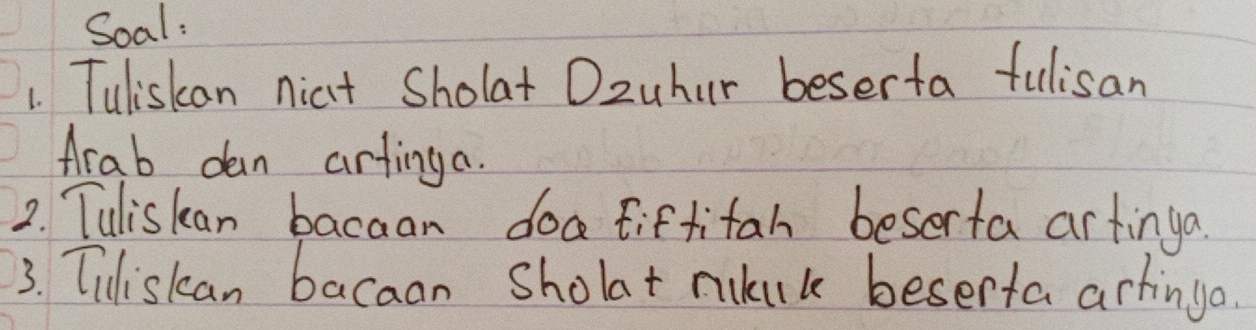 Soal:
1. Tuliskan niat Sholat Dzuhur beserta tulisan
Arab dan artinya.
2. Tuliskan bacaan doa fiftitah beserta artinya.
3. Tuliskan bacaan Sholat rukuk beserta artinya.